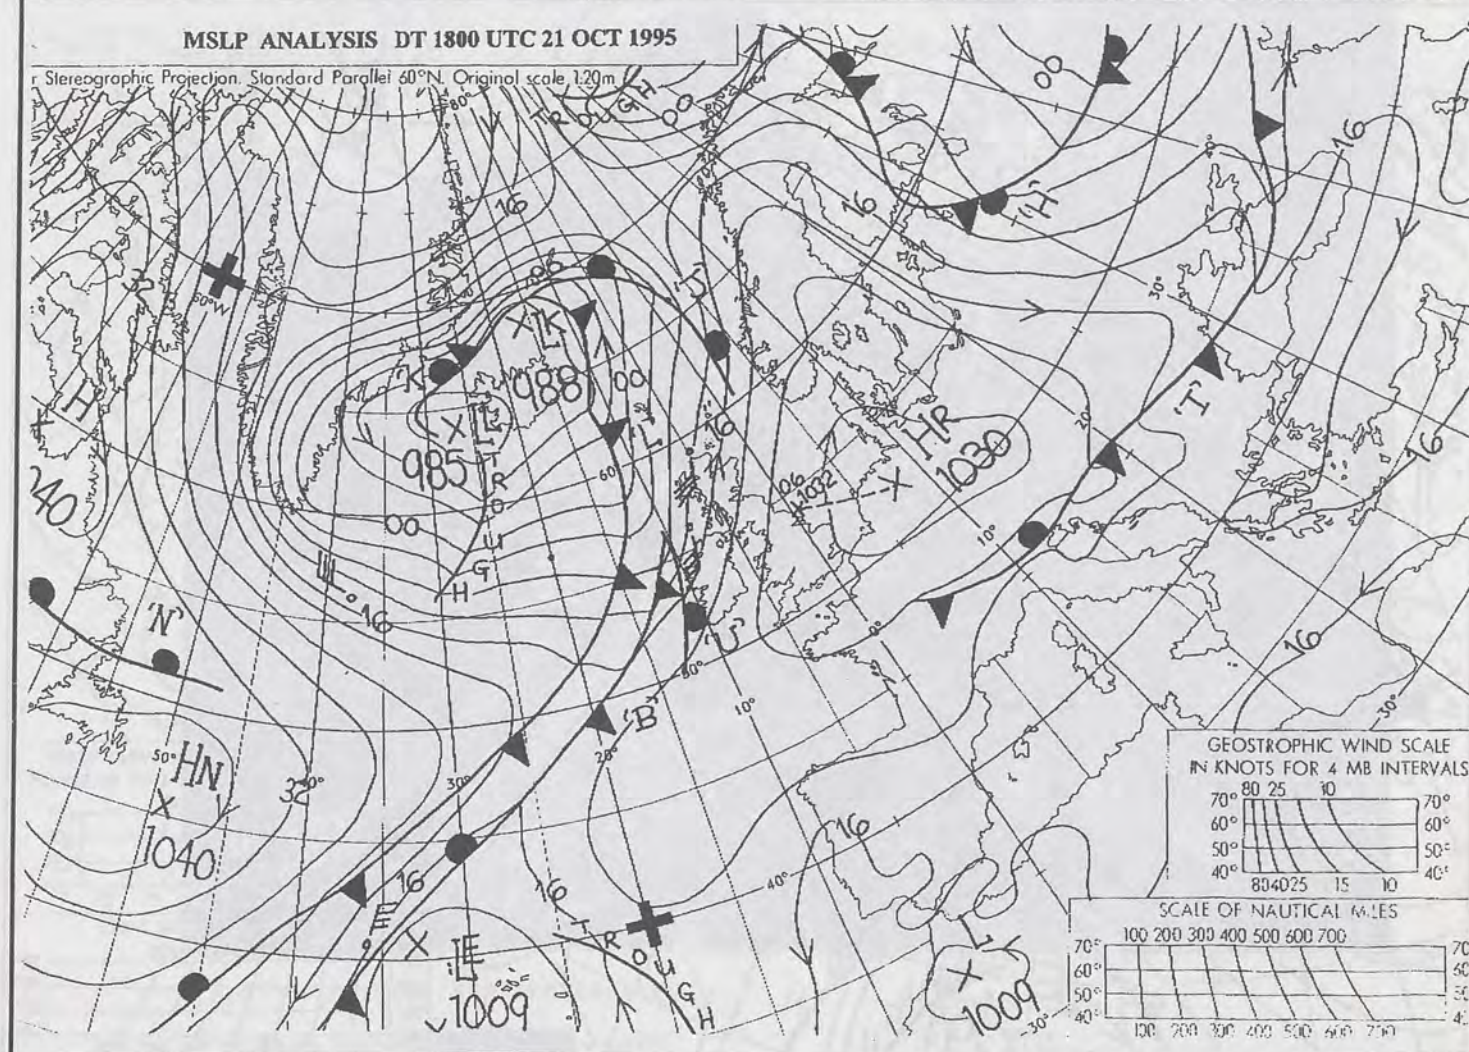 MSLP ANALYSIS DT 1800 UTC 21 OCT 1995
r Stereographic Projection. Standard Parallel 60°N. Original scale 1:20m
80°
TROUGH
00
00
16
16
'H'
16
40°
06
'J'
50°W
32
H
'K'
LK
988
00
L
985
'L'
16
60°
TROUGH
00
HR
1030
06
1032
'T'
30°
20°
10°
0°
16
16
16
30°
040
16
'N'
'J'
50°
10°
'B'
20°
30°
50°
HN
1040
32
16
16
16
40°
LE
1009
TROUGH
L
1009
30°
GEOSTROPHIC WIND SCALE
IN KNOTS FOR 4 MB INTERVALS
80 25 10
70° 70°
60° 60°
50° 50°
40° 40°
80 40 25 15 10
SCALE OF NAUTICAL MILES
100 200 300 400 500 600 700
70° 70
60° 60
50° 50
40° 4
100 200 300 400 500 600 700